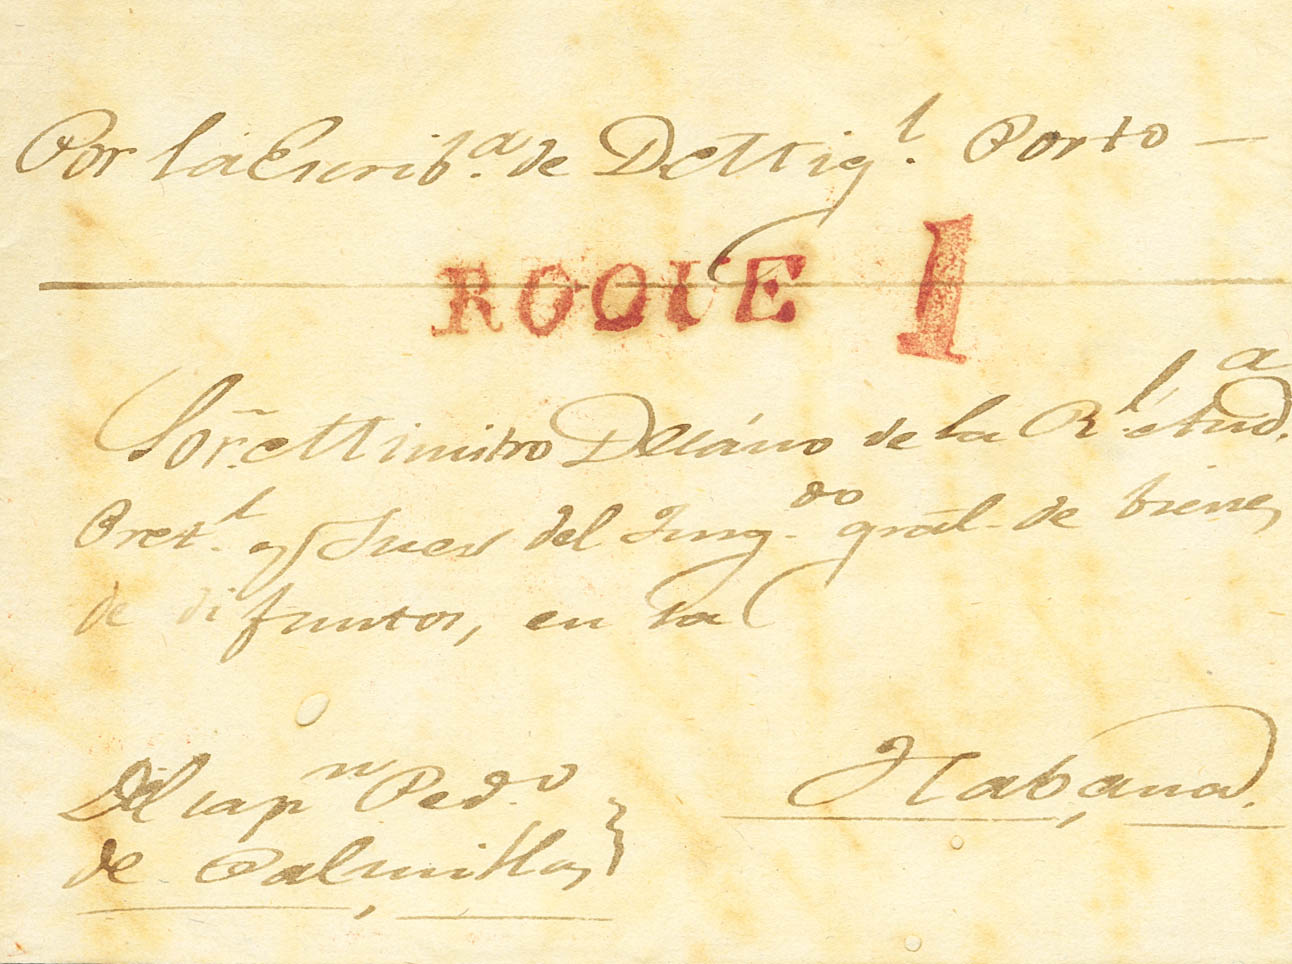 Por la Escrib.ª de D Mig.l Porto —
ROQUE 1
Sor. Ministro Decáno de la R.l Aud.ª
Pret.l y Juez del Juzg.do gral. de bienes
de difuntos, en la
Habana.
Del cap.n Ped.o
de Palmillas